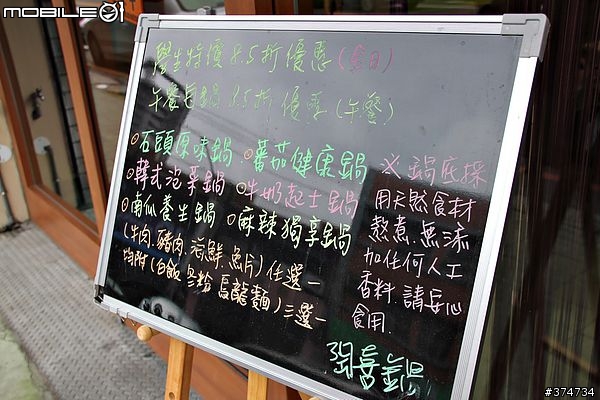 MOBILE01
學生特價8.5折優惠(全日)
午餐包鍋8.5折優惠(午餐)
石頭原味鍋 番茄健康鍋
韓式泡菜鍋 牛奶起士鍋
南瓜養生鍋 麻辣獨享鍋
(牛肉.豬肉.海鮮.魚片)任選一
均附(白飯.冬粉.烏龍麵)三選一
※鍋底採
用天然食材
熬煮.無添
加任何人工
香料.請安心
食用.
喜鍋
#374734